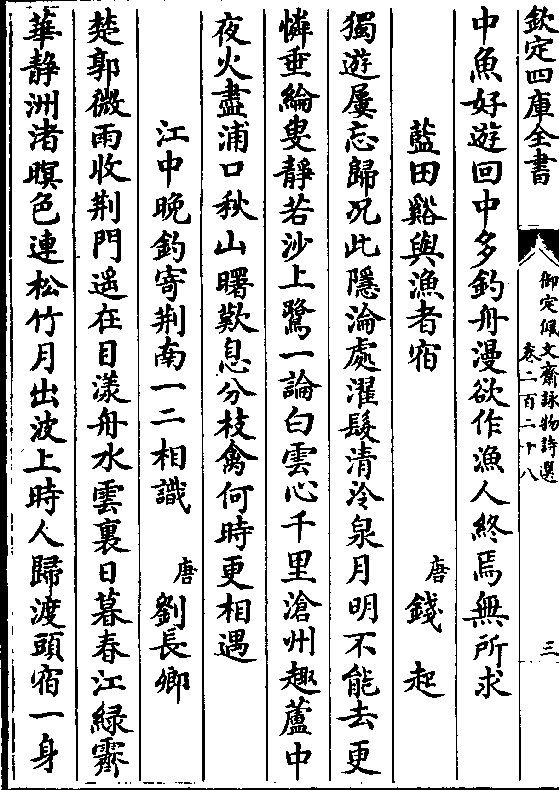 欽定四庫全書
御定佩文齋詠物詩選
卷二百二十八
三
中魚好遊回中多釣舟漫欲作漁人終焉無所求
藍田谿與漁者宿 唐錢起
獨遊屢忘歸况此隱淪處濯髮清泠泉月明不能去更
憐垂綸叟靜若沙上鷺一論白雲心千里滄州趣蘆中
夜火盡浦口秋山曙歎息分枝禽何時更相遇
江中晚釣寄荆南一二相識 唐劉長卿
楚郭微雨收荆門遥在目漾舟水雲裏日暮春江緑霽
華静洲渚暝色連松竹月出波上時人歸渡頭宿一身